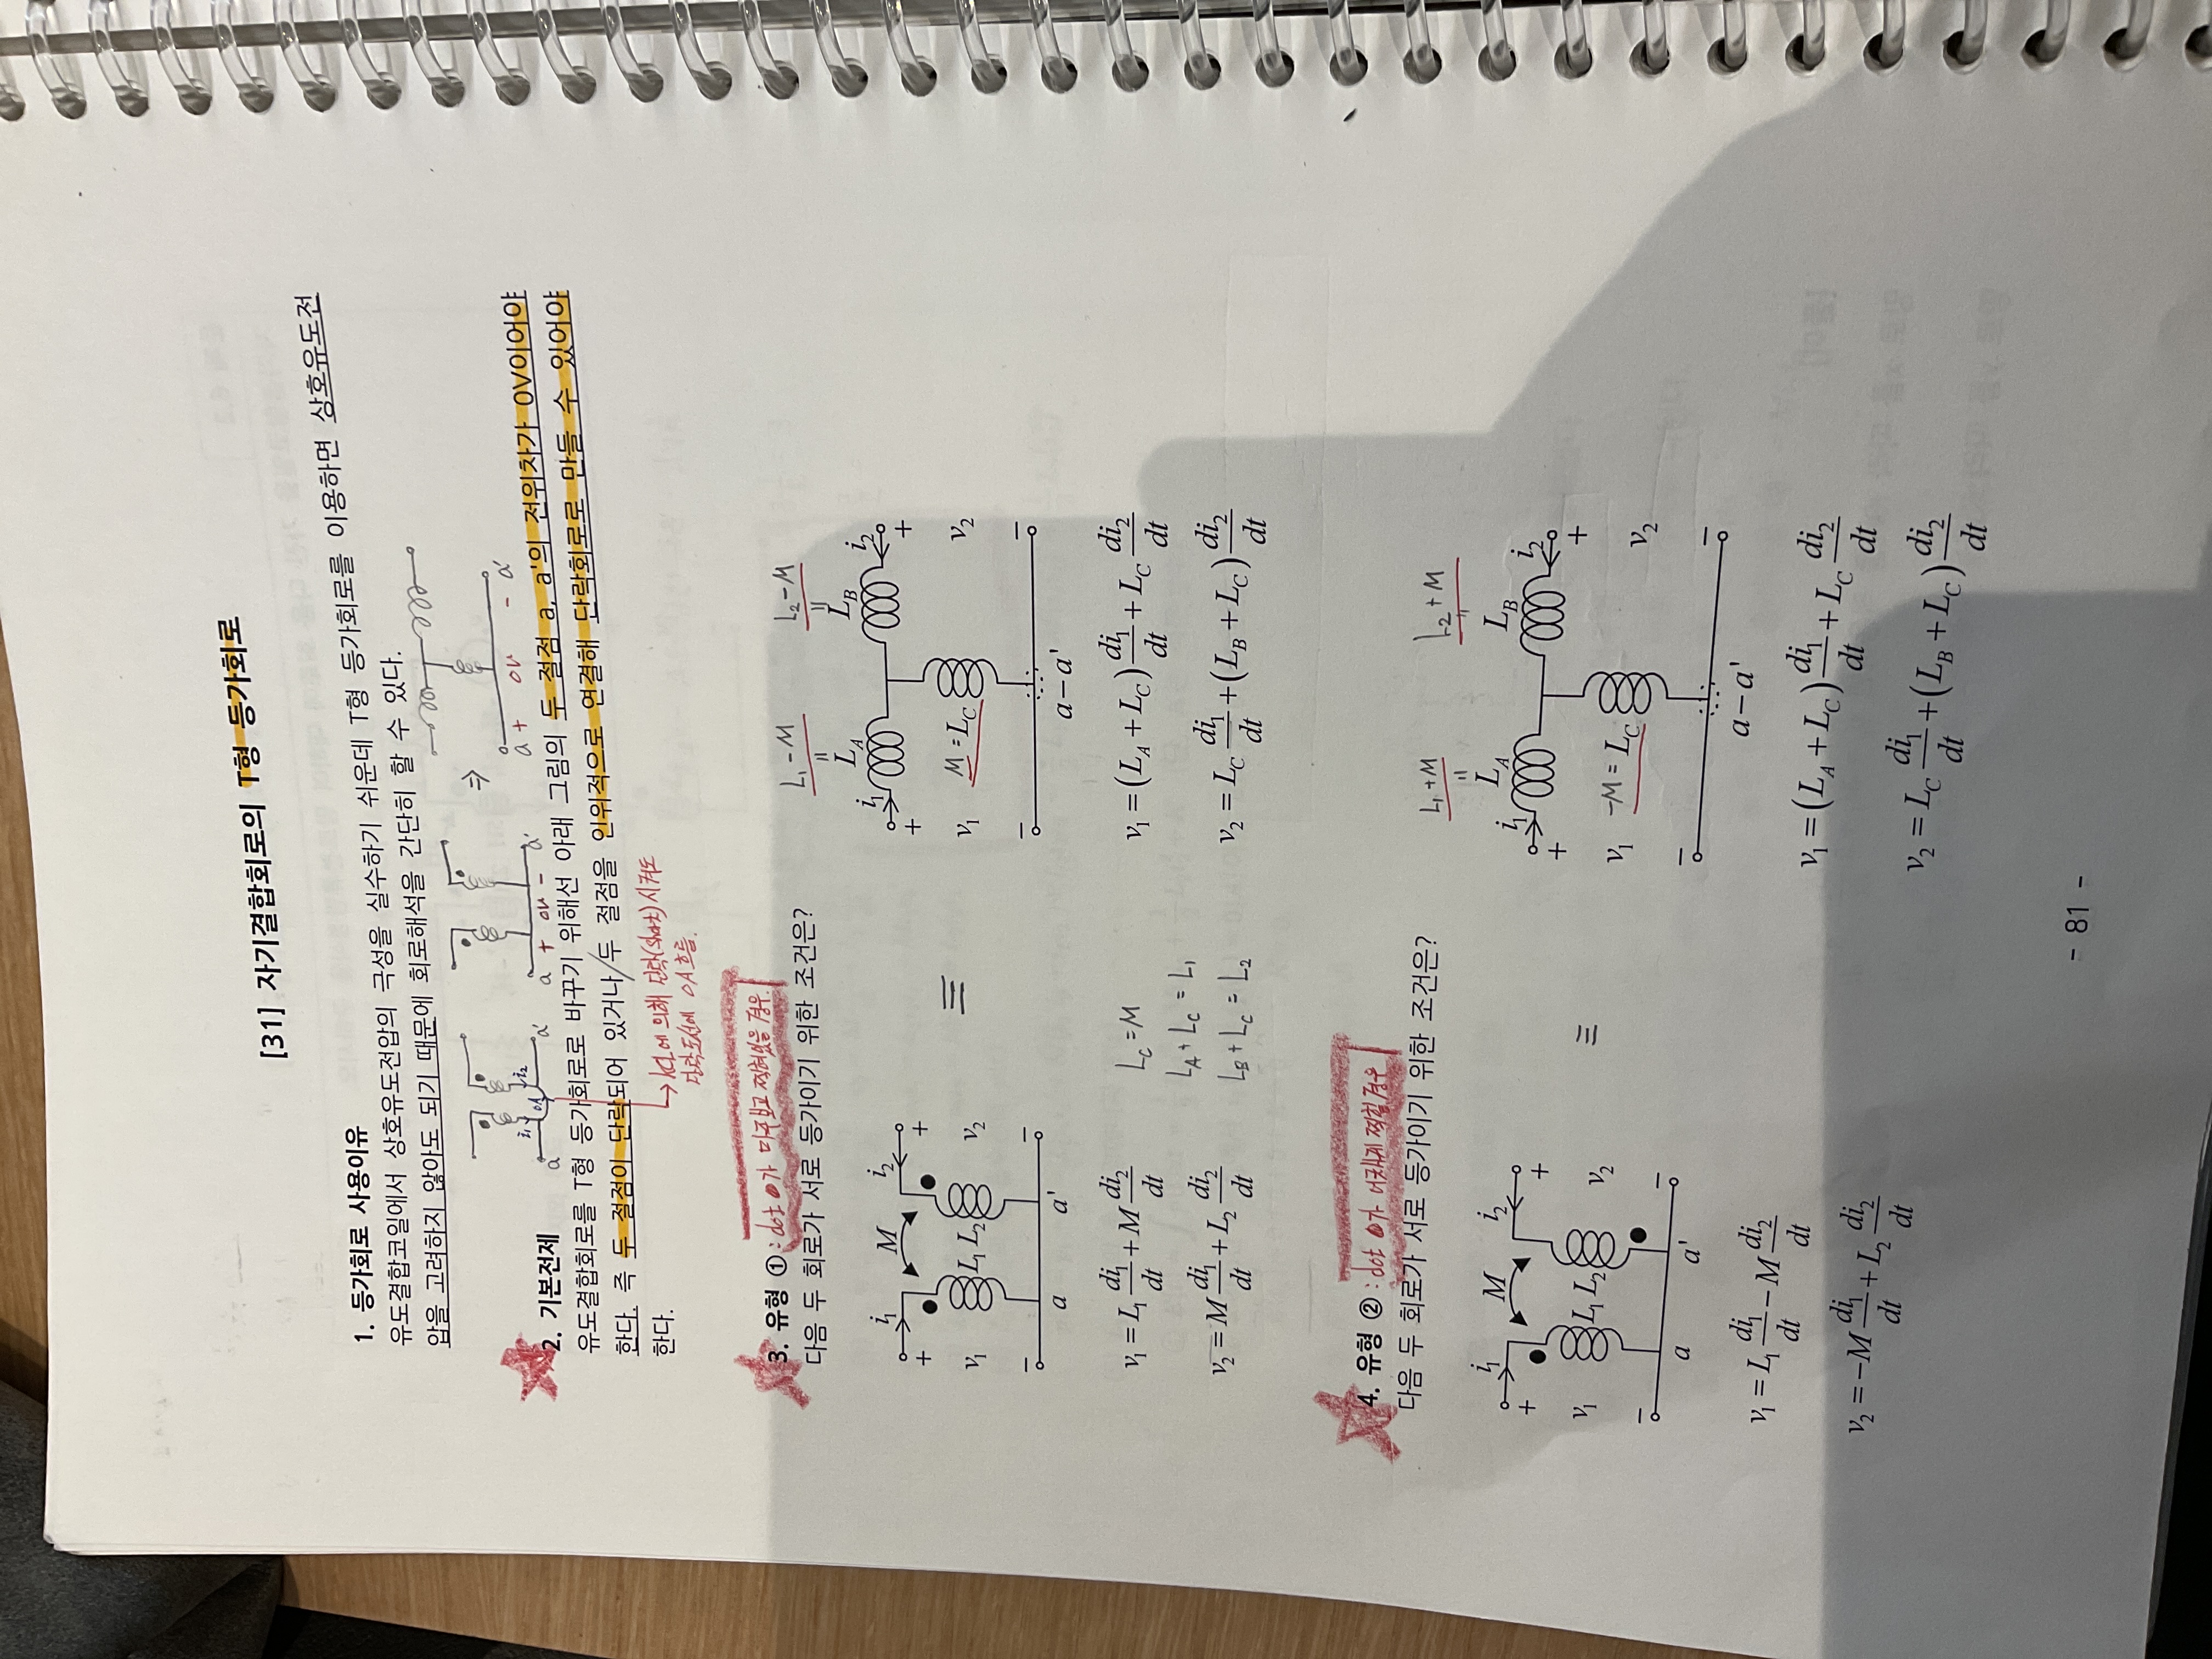 [31] 자기결합회로의 T형 등가회로
1. 등가회로 사용이유
유도결합코일에서 상호유도전압의 극성을 실수하기 쉬운데 T형 등가회로를 이용하면 상호유도전
압을 고려하지 않아도 되기 때문에 회로해석을 간단히 할 수 있다.
a i₁ 0A i₂ a'
a + 0V - a'
⇒
a + 0V - a'
2. 기본전제
유도결합회로를 T형 등가회로로 바꾸기 위해선 아래 그림의 두 절점 a, a'의 전위차가 0V이어야
한다. 즉 두 절점이 단락되어 있거나/두 절점을 인위적으로 연결해 단락회로로 만들 수 있어야
한다.
→ KCL에 의해 단락(short)시켜도
단락도선에 0A 흐름.
3. 유형 ①: dot ●가 마주보고 찍혀있을 경우.
다음 두 회로가 서로 등가이기 위한 조건은?
i₁ M i₂
+ +
v₁ L₁ L₂ v₂
- -
a a'
≡
L₁-M L₂-M
= =
L_A L_B
i₁ i₂
+ +
v₁ M = L_C v₂
- -
a-a'
v₁ = L₁ di₁/dt + M di₂/dt
v₂ = M di₁/dt + L₂ di₂/dt
L_C = M
L_A + L_C = L₁
L_B + L_C = L₂
v₁ = (L_A + L_C) di₁/dt + L_C di₂/dt
v₂ = L_C di₁/dt + (L_B + L_C) di₂/dt
4. 유형 ②: dot ●가 어긋나게 찍힐 경우
다음 두 회로가 서로 등가이기 위한 조건은?
i₁ M i₂
+ +
v₁ L₁ L₂ v₂
- -
a a'
≡
L₁+M L₂+M
= =
L_A L_B
i₁ i₂
+ +
v₁ -M = L_C v₂
- -
a-a'
v₁ = L₁ di₁/dt - M di₂/dt
v₂ = -M di₁/dt + L₂ di₂/dt
v₁ = (L_A + L_C) di₁/dt + L_C di₂/dt
v₂ = L_C di₁/dt + (L_B + L_C) di₂/dt
- 81 -